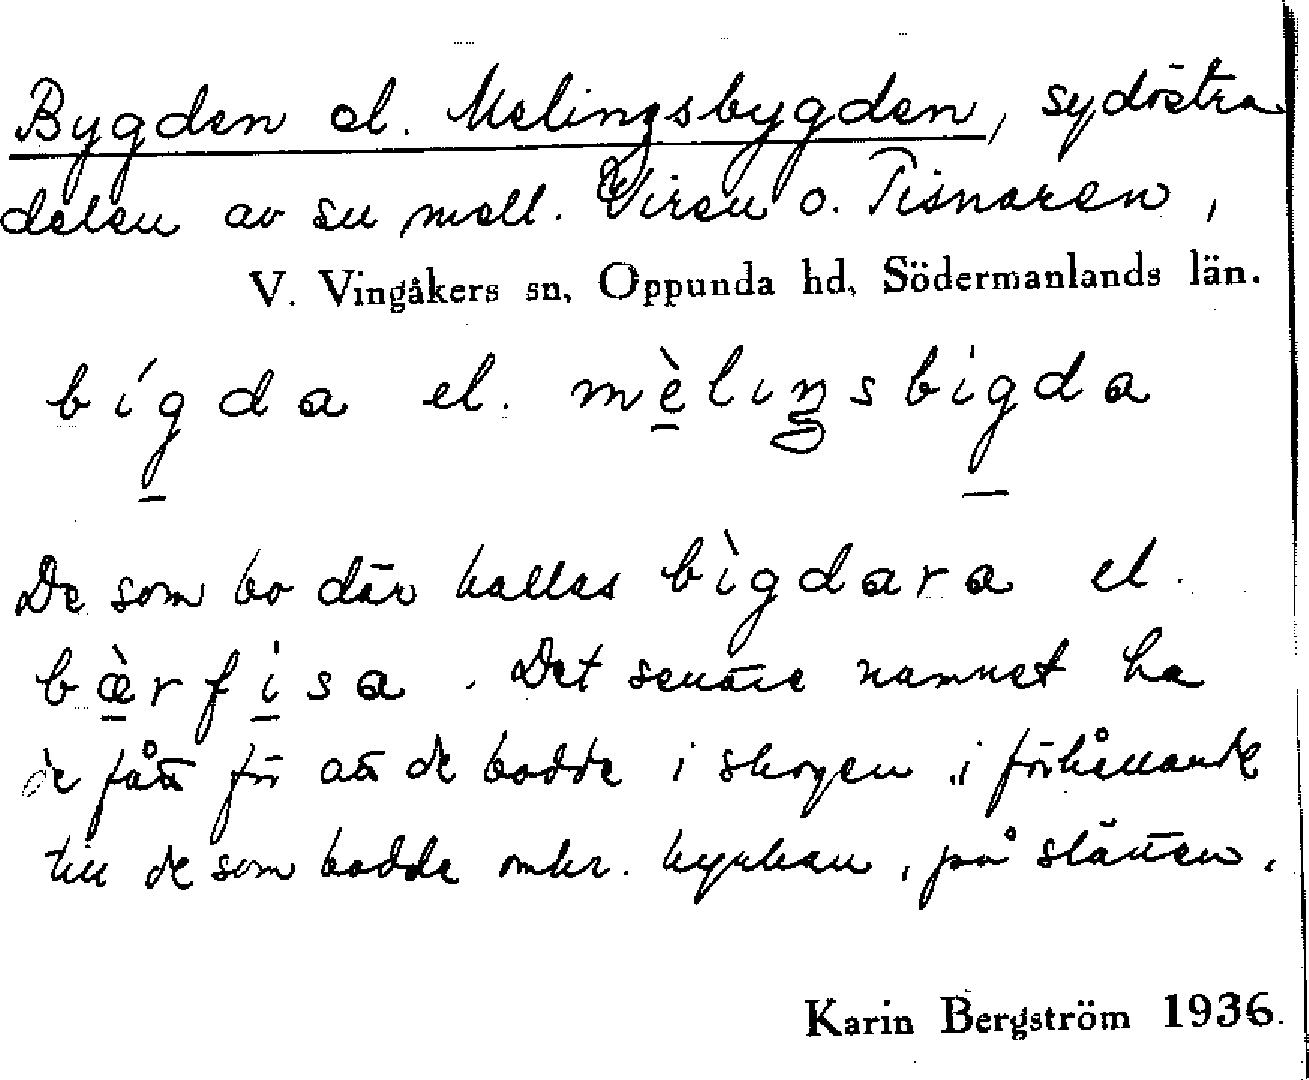 Bygden el. Melingsbygden, sydöstra
delen av sn mell. Viren o. Tisnaren,
V. Vingåkers sn, Oppunda hd, Södermanlands län.
bígda el. mèliŋsbigda
De som bo där kallas bìgdara el.
bærfisa. Det senare namnet ha
de fått för att de bodde i skogen i förhållande
till de som bodde omkr. kyrkan, på slätten.
Karin Bergström 1936.